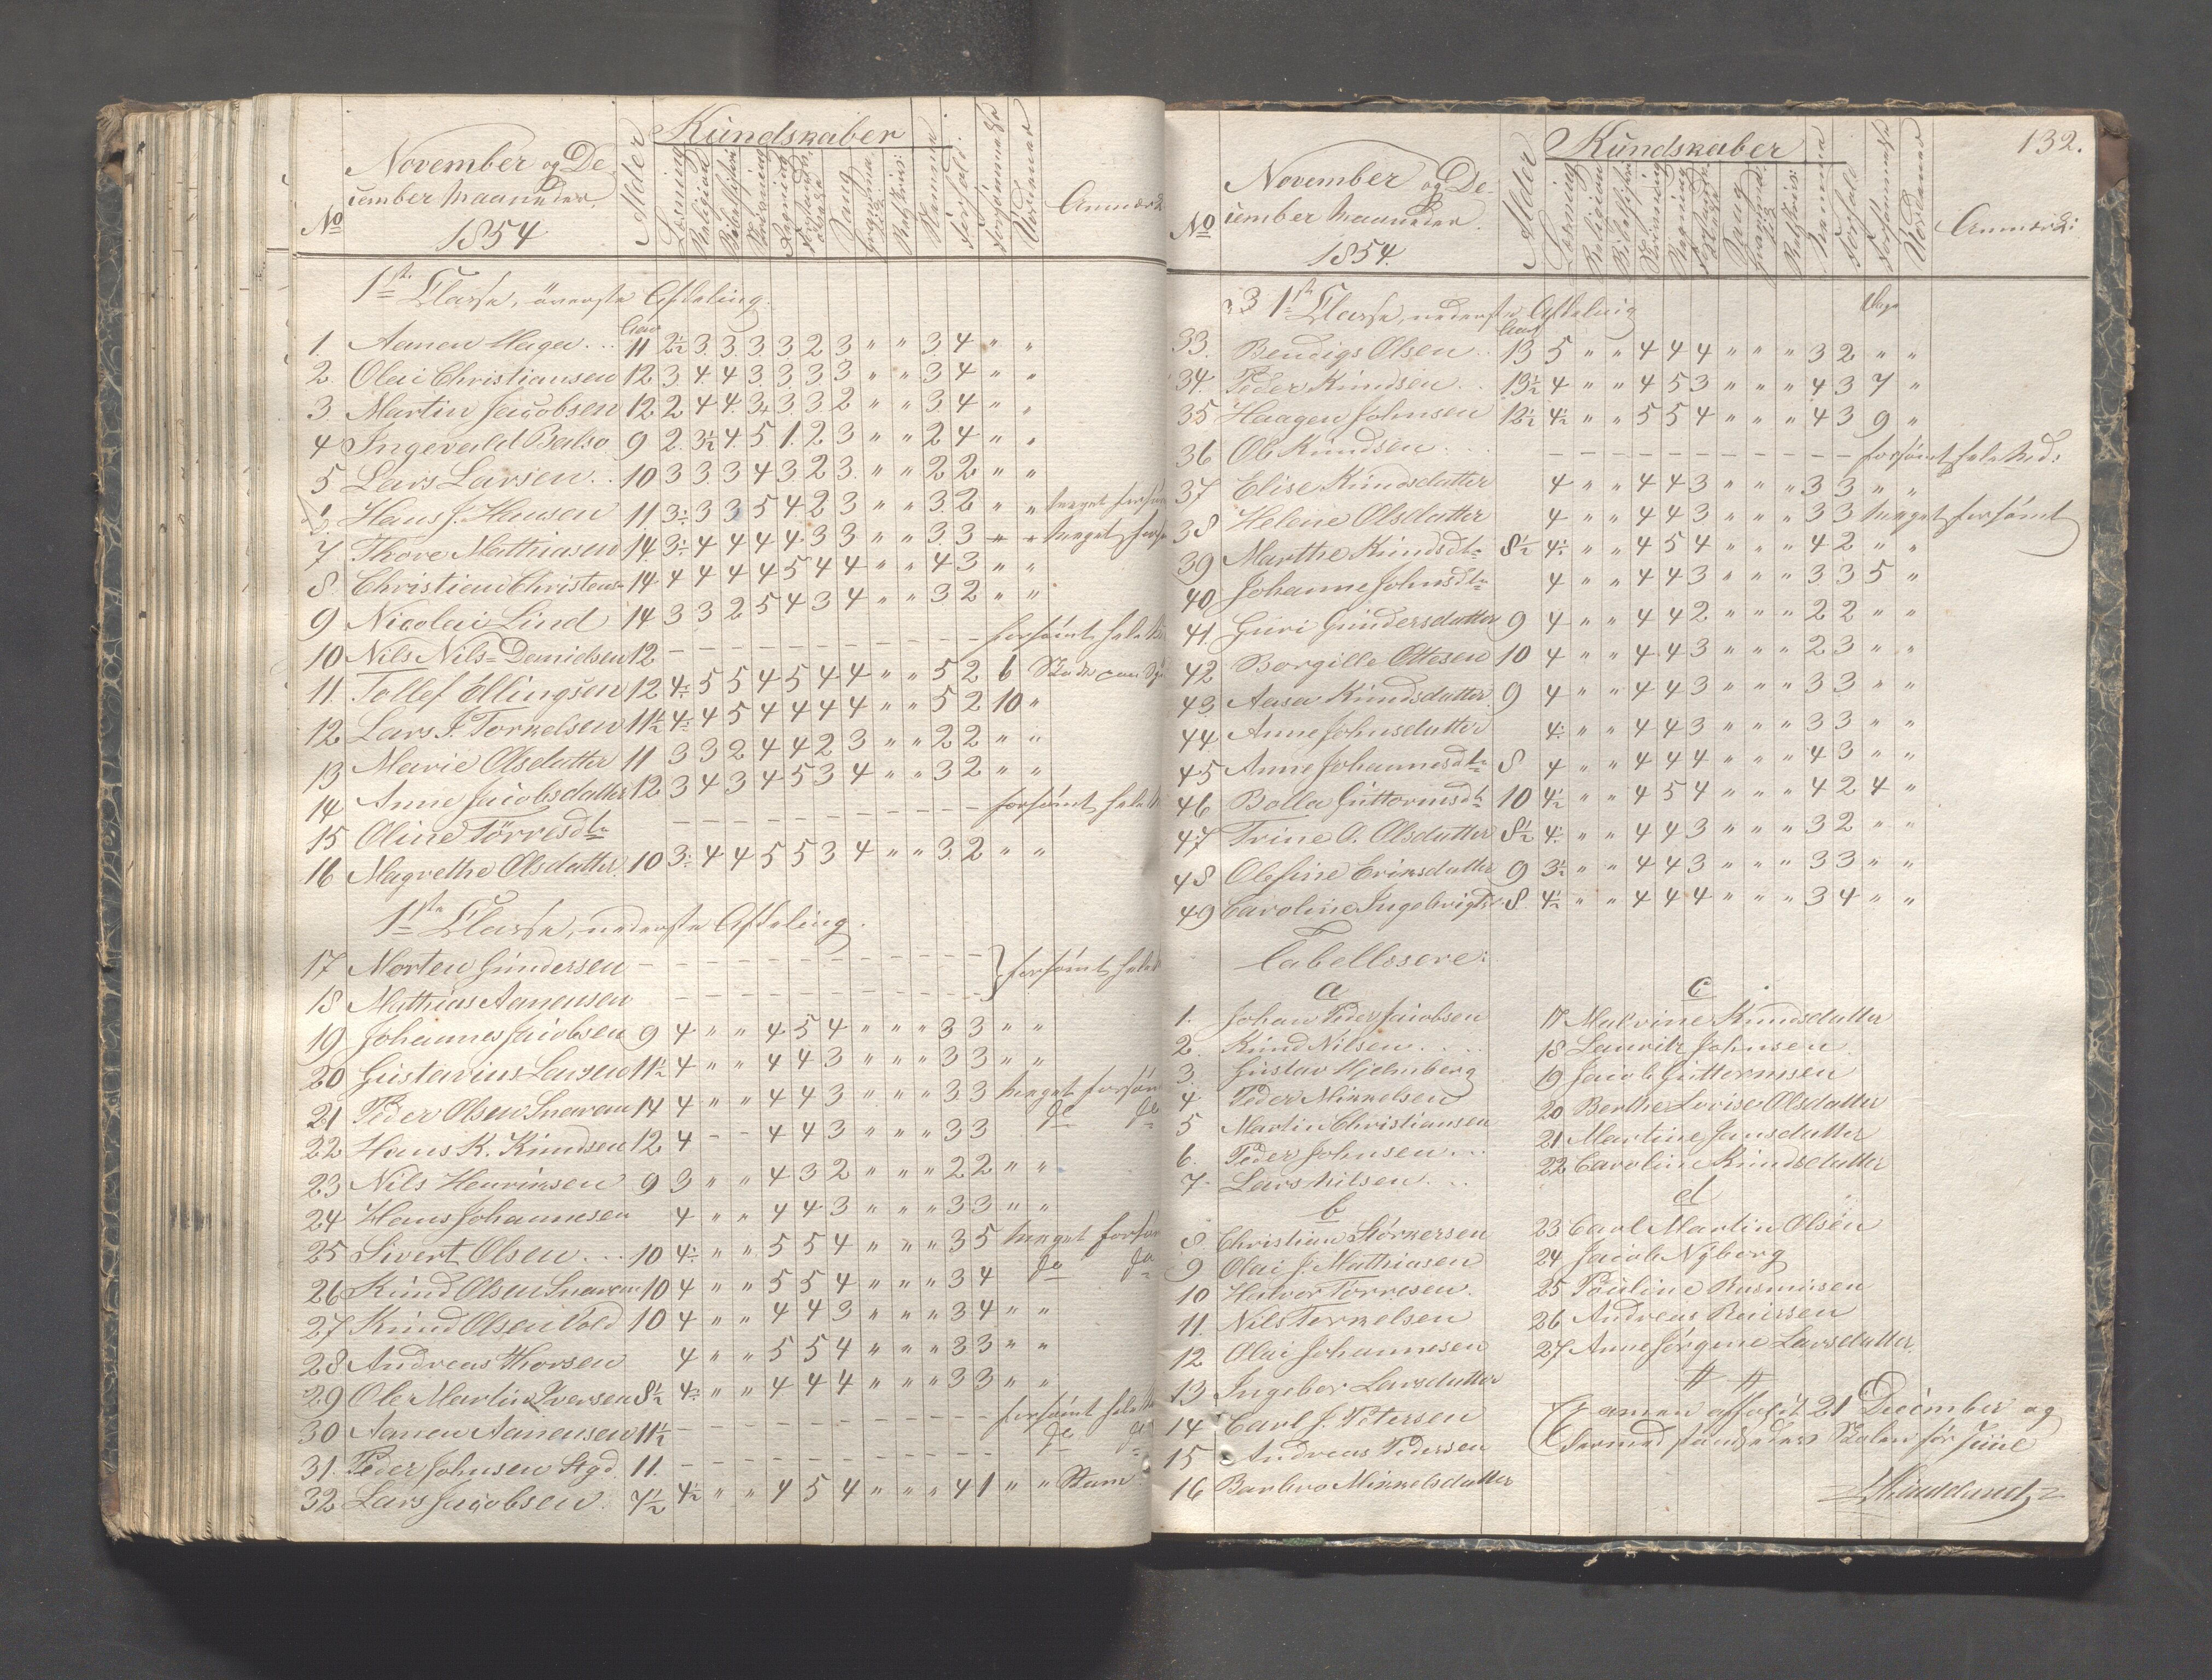 No
November og De-
cember Maaneder
1854
Alder
Kundskaber
Læsning
Religion
Bibelhistorie
Skrivning
Regning
Forstands-
øvelse
Sang
Gramma
tik
Retskriv:
Nemme
Forhold.
Forsømmelse
Udeemed
Anmærk
1ste Classe, øverste Afdeling.
Aar
1. Aanen Haga . . 11 2½ 3. 3. 3. 3. 2 3 " " 3. 4 " "
2 Olai Christiansen 12 3. 4. 4 3. 3. 3 3 " " 3 4 " "
3 Martin Jacobsen 12 2 4 4. 3. 3. 3 2 " " 3. 4 " "
4 Ingevald Balso 9 2. 3½ 4. 5 1. 2 3 " " 2 4 " "
5 Lars Larsen . . 10 3 3. 3 4 3. 2 3. " " 2 2 " "
6 Hans J. Hansen 11 3÷ 3 3 5 4 2 3 " " 3. 2 " " meget forsøm
7 Thore Mathiasen 14 3÷ 4 4 4 4 3 3 " " 3. 3 " " meget fors
8 Christian Christens= 14 4 4 4 4 5 4 4 " " 4 3 " "
9 Nicolai Lind 14 3 3 2 5 4 3 4 " " 3 2 " "
10 Nils Nils=Danielsen 12 – – – – – – – – – – – forsømt hele
11. Tollef Ellingsen 12 4÷ 5 5 4 5 4 4 " " 5 2 6
12 Lars J. Torkelsen 11½ 4÷ 4 5 4 4 4 4 " " 5 2 10 "
13 Marie Olsdatter 11 3 3 2 4 4 2 3 " " 2 2 " "
14 Anne Jacobsdatter 12 3 4 3 4 5 3 4 " " 3 2 " "
15 Oline Törresdtr – – – – – – – – – – – forsømt hele
16 Magrethe Olsdatter 10 3÷ 4 4 5 5 3 4 " " 3. 2 " "
1ste Classe, nederste Afdeling.
17 Morten Gundersen – – – – – – – – – – – } forsømt hele
18 Mathias Aanensen – – – – – – – – – – –
19 Johannes Jacobsen 9 4 " " 4 5 4 " " " 3 3 " "
20 Gustavius Larsen 11½ 4 " " 4 4 3 " " " 3 3 " "
21 Peder Olsen Snaren 14 4 " " 4 4 3 " " " 3 3 meget forsøm
22 Hans K. Knudsen 12 4 – – 4 4 3 " " " 3 3 do do
23 Nils Henriksen 9 3 " " 4 3 2 " " " 2 2 " "
24 Hans Johannesen 4 " " 4 4 3 " " " 3 3 " "
25 Sivert Olsen . . . 10 4÷ " " 5 5 4 " " " 3 5 meget forsøm
26 Knud Olsen Snaren 10 4 " " 5 5 4 " " " 3 4 do do
27 Knud Olsen Vold 10 4 " " 4 4 3 " " " 3 4 " "
28 Andreas Thorsen 4 " " 5 5 4 " " " 3 3 " "
29 Ole Martin Iversen 8½ 4÷ " " 4 4 4 " " " 3 3 " "
30 Aanen Aanensen 11½ – – – – – – – – – – – forsømt hele
31. Peder Johnsen Stgd. 11. – – – – – – – – – – – do do
32 Lars Jacobsen. 7½ 4½ " " 4 5 4 " " " 4 1 " " Stam
132.
No
November og De-
cember Maaneder.
1854.
Alder
Kundskaber
Læsning
Religion
Bibelhistorie
Skrivning
Regning
Forstands
øvelse
Sang
Gramma
tik
Retskriv:
Nemme
Forhold
Forsømmelse
Anmærk:
33 1ste Classe, nederste Afdeling
Aar
Dage
33. Bendigs Olsen . . 13 5 " " 4 4 4 " " " 3 2 " "
34. Peder Knudsen . . 13½ 4 " " 4 5 3 " " " 4 3 7 "
35 Haagen Johnsen 12½ 4÷ " " 5 5 4 " " " 4 3 9 "
36 Ole Knudsen . . . – – – – – – – – – – – forsømt hele tid:
37 Elise Knudsdatter 4 " " 4 4 3 " " " 3 3 " "
38 Helene Olsdatter 4 " " 4 4 3 " " " 3 3 meget forsømt
39 Marthe Knudsdtr 8½ 4÷ " " 4 5 4 " " " 4 2 " "
40 Johanne Johnsdtr 4 " " 4 4 3 " " " 3 3 5 "
41. Guri Gundersdatter 9 4 " " 4 4 2 " " " 2 2 " "
42 Borgille Ottesen 10 4 " " 4 4 3 " " " 2 3 " "
43. Aasa Knudsdatter 9 4 " " 4 4 3 " " " 3 3 " "
44 Anne Johnsdatter 4÷ " " 4 4 3 " " " 3 3 " "
45 Anne Johannesdtr 8 4 " " 4 4 4 " " " 4 3 " "
46 Bolla Guttormsdtr 10 4½ " " 4 5 4 " " " 4 2 4 "
47 Trine A. Olsdatter 8½ 4÷ " " 4 4 3 " " " 3 2 " "
48 Olefine Eriksdatter 9 3½ " " 4 4 3 " " " 3 3 " "
49 Caroline Ingebrigts 8 4½ " " 4 4 4 " " " 3 4 " "
Tabellæsere:
a
1. Johan Peder Jacobsen
2. Knud Nilsen . . . .
3. Gustav Hjelmberg
4 Peder Mikkelsen
5 Martin Christiansen
6. Peder Johnsen . . .
7. Lars Nilsen . . .
b
8 Christian Störkersen
9 Olai J. Mathiasen
10 Halvor Törresen.
11. Nils Terkelsen
12 Olai Johannesen
13 Ingebor Larsdatter
14 Carl J. Petersen
15 Andreas Pedersen
16 Barbro Mikkelsdatter
c
17 Malvine Knudsdatter
18 Lauritz Johnsen
19 Jacob Guttormsen
20 Berthe Lovise Olsdatter
21 Martine Jansdatter
22 Caroline Knudsdatter
d
23 Carl Martin Olsen
24 Jacob Nyborg
25 Pauline Rasmusen
26 Andreas Reiersen
27 Anne Jörgine Larsdatter.
Examen afholdt 21 December og
dermed Skolen for Juul